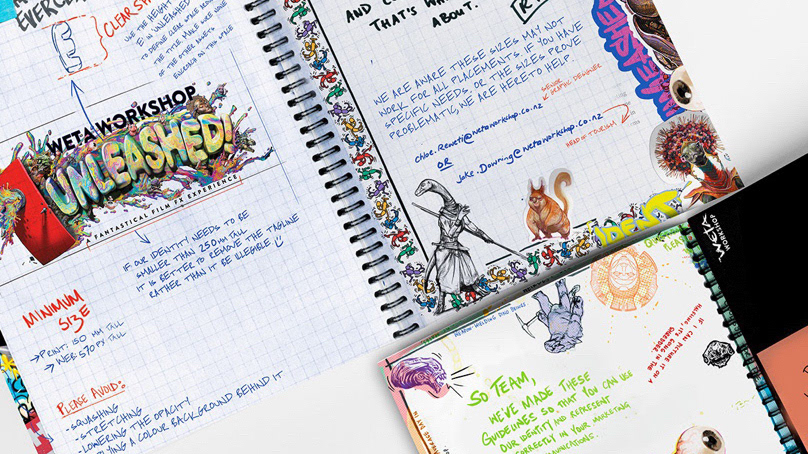 EVERYD
CLEAR S
USE THE HEIGHT
'E' IN UNLEASHED
TO DEFINE CLEAR SPACE
THE TITLE. MAKE SURE NONE
OF THE OTHER ASSETS
ENCROACH ON THIS
WETA WORKSHOP
UNLEASHED!
A FANTASTICAL FILM FX EXPERIENCE
IF OUR IDENTITY NEEDS TO BE
SMALLER THAN 250MM TALL
IT IS BETTER TO REMOVE THE TAGLINE
RATHER THAN IT BE ILLEGIBLE
MINIMUM
SIZE
→ PRINT: 150 MM TALL
→ WEB: 570 PX TALL
PLEASE AVOID:
- SQUASHING
- STRETCHING
- LOWERING THE OPACITY
A COLOUR BACKGROUND BEHIND IT
AND
THAT'S WH
ABOUT.
WE ARE AWARE THESE SIZES MAY NOT
WORK FOR ALL PLACEMENTS. IF YOU HAVE
SPECIFIC NEEDS, OR THE SIZES PROVE
PROBLEMATIC, WE ARE HERE TO HELP.
SENIOR
GRAPHIC DESIGNER
chloe.reweti@wetaworkshop.co.nz
OR
HEAD OF TOURISM
jake.downing@wetaworkshop.co.nz
WETA
WORKSHOP
IF I CAN PICTURE IT ON A
SO TEAM,
WE'VE MADE THESE
GUIDELINES SO THAT YOU CAN USE
OUR IDENTITY AND REPRESENT
CORRECTLY IN YOUR MARKETING